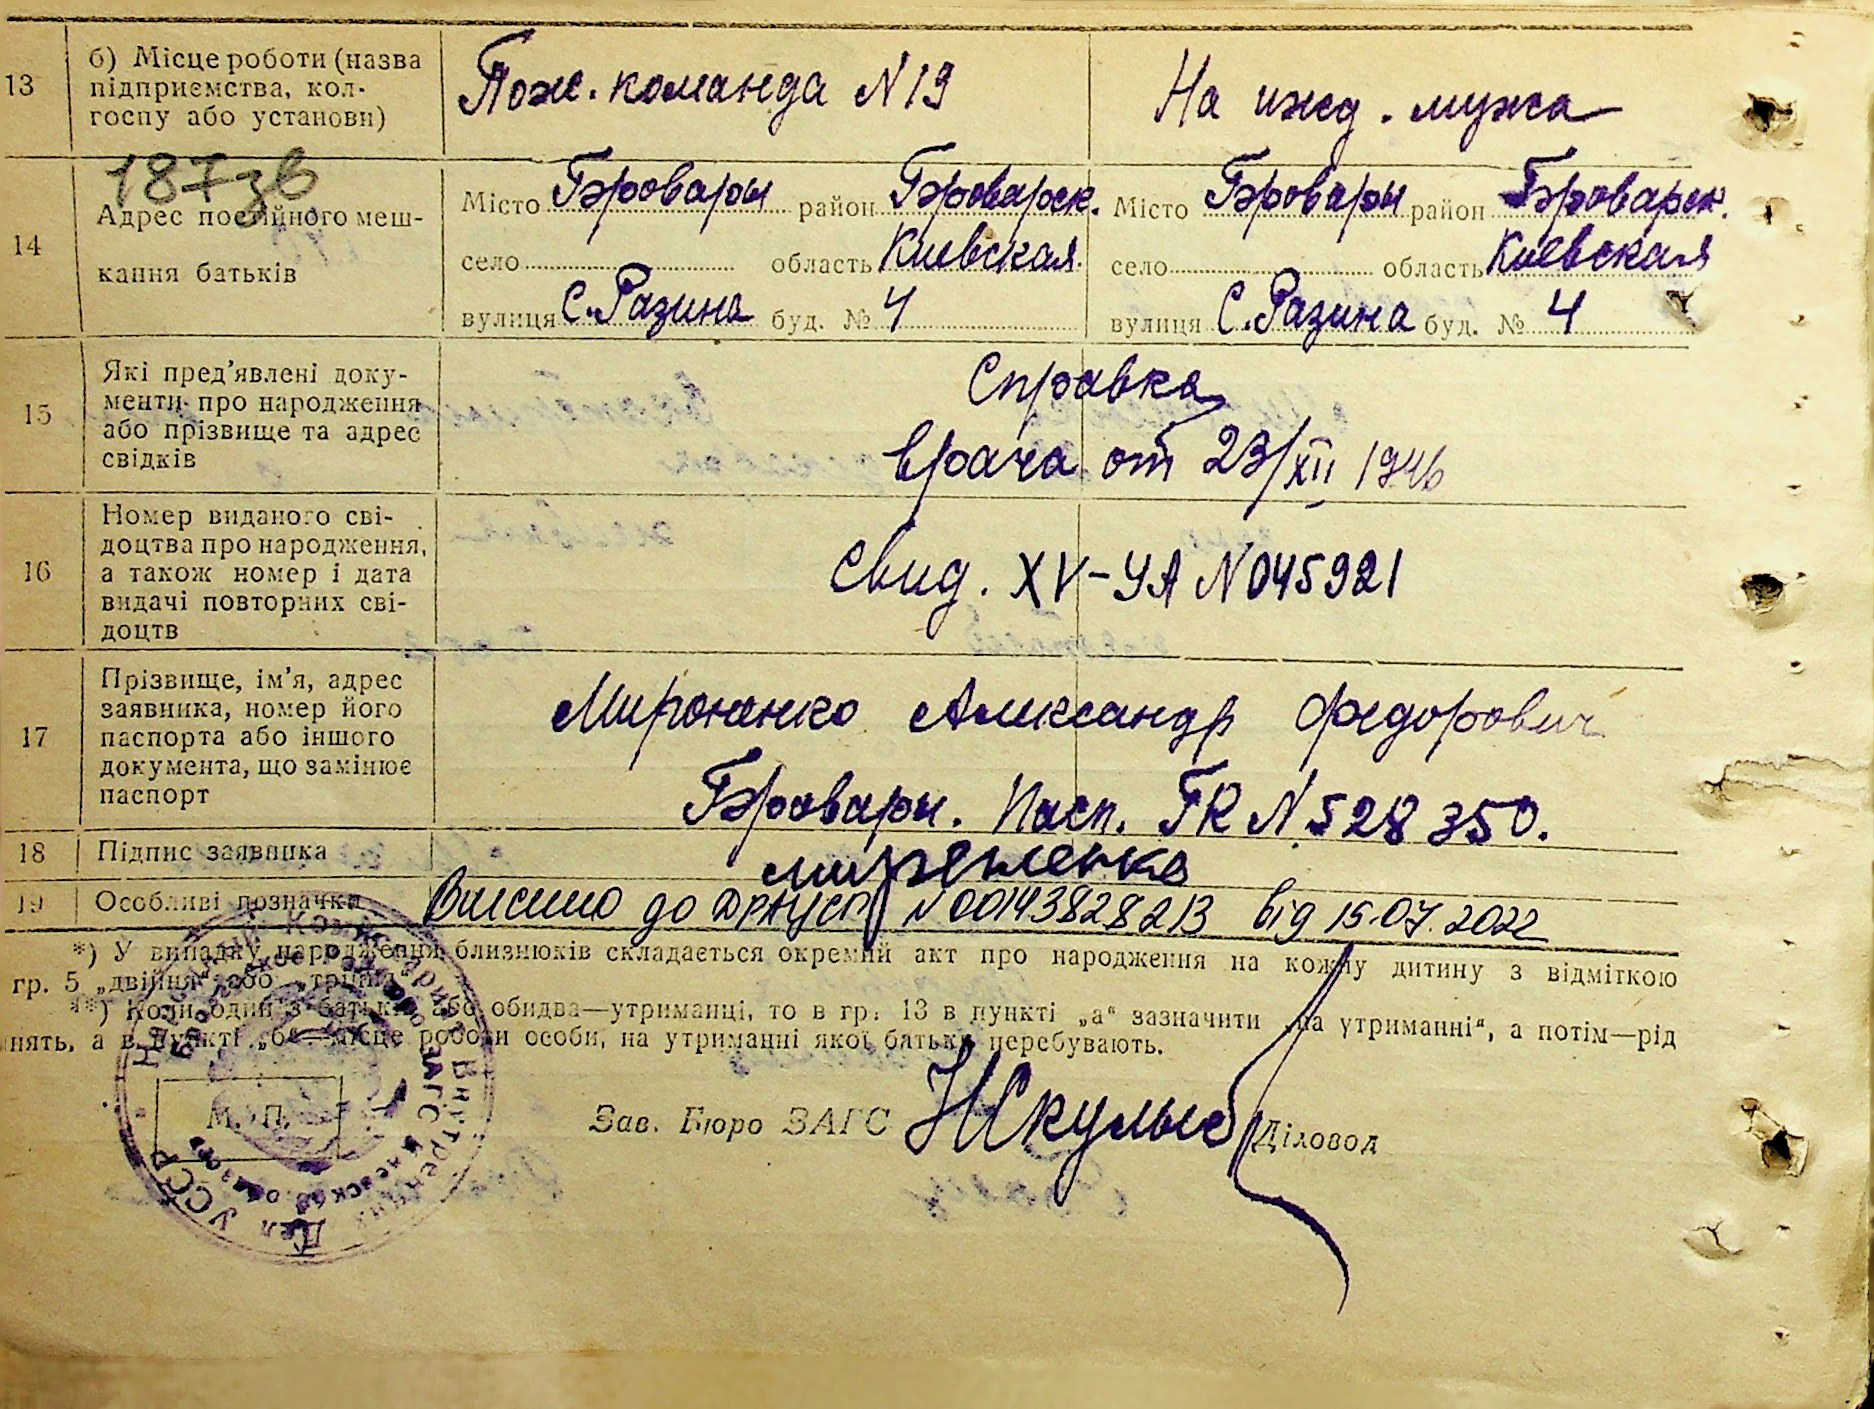 13
б) Місце роботи (назва
підприємства, кол-
госпу або установи)
Пож. команда N 19
На ижд. мужа
187зв
14
Адрес постійного меш-
кання батьків
Місто Бровары район Броварск.
село область Киевская
вулиця С. Разина буд. № 4
Місто Бровары район Броварск.
село область Киевская
вулиця С. Разина буд. № 4
15
Які пред'явлені доку-
менти про народження
або прізвище та адрес
свідків
Справка
врача от 23/XII 1946
16
Номер виданого сві-
доцтва про народження,
а також номер і дата
видачі повторних сві-
доцтв
Свид. XV-УА N 045921
17
Прізвище, ім'я, адрес
заявника, номер його
паспорта або іншого
документа, що замінює
паспорт
Мироненко Александр Федорович
Бровары. Пасп. ГК N 528350.
18
Підпис заявника
Мироненко
19
Особливі позначки
Внесено до ДРАЦСГ N 00143828213 від 15.07.2022
*) У випадку народження близнюків складається окремий акт про народження на кожну дитину з відміткою
гр. 5 „двійня“ або „трійня“.
**) Коли один з батьків або обидва—утриманці, то в гр. 13 в пункті „а“ зазначити „на утриманні“, а потім—рід
нять, а в пункті „б“—місце роботи особи, на утриманні якої батьки перебувають.
М. П.
Зав. Бюро ЗАГС
Діловод
Народный Комиссариат Внутренних Дел УССР
ЗАГС Киевской области